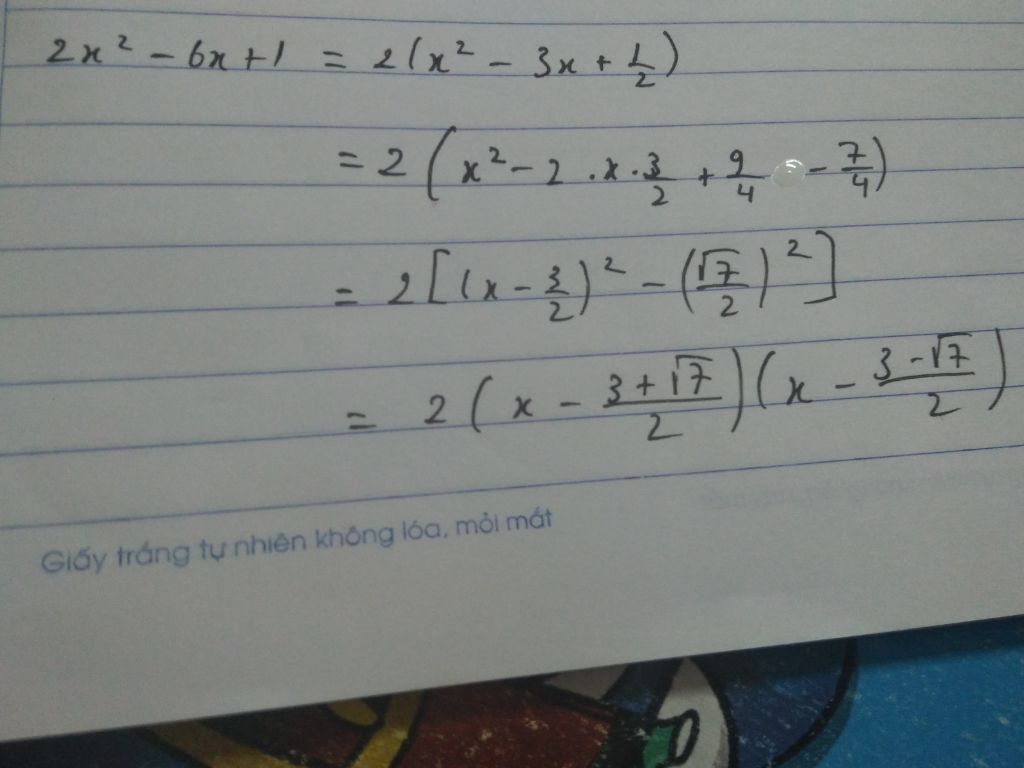 2x² - 6x + 1 = 2(x² - 3x + 1/2)
= 2(x² - 2 . x . 3/2 + 9/4 - 7/4)
= 2[(x - 3/2)² - (√7/2)²]
= 2(x - (3 + √7)/2)(x - (3 - √7)/2)
Giấy trắng tự nhiên không lóa, mỏi mắt